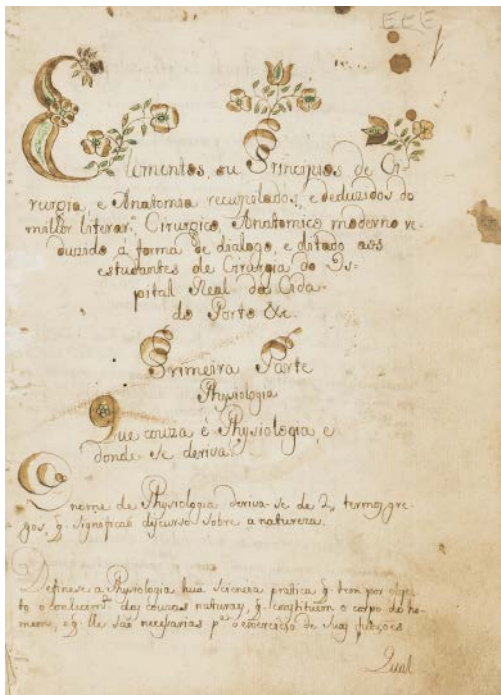 EEE
Elementos, ou Principios de Ci-
rurgia, e Anatomia recupilados, e deduzidos do
milhor literar.º Cirurgico, Anatomico moderno re-
duzido á forma de dialogo, e ditado aos
estudantes de Cirurgia do Os-
pital Real da Cida-
do Porto &c.
Primeira Parte
Physiologia
Que couza é Physiologia, e
donde se deriva?
O nome de Physiologia deriva-se de 2, termos gre-
gos, q. significaõ discurso sobre a natureza.
Definese a Physiologia huã sciencia pratica q. tem por obje-
to o conhecim.to das couzas naturays, q. constituem o corpo do ho-
mem, e q. lhe saõ necessarias p.ª o exercicio de suas funções.
Qual